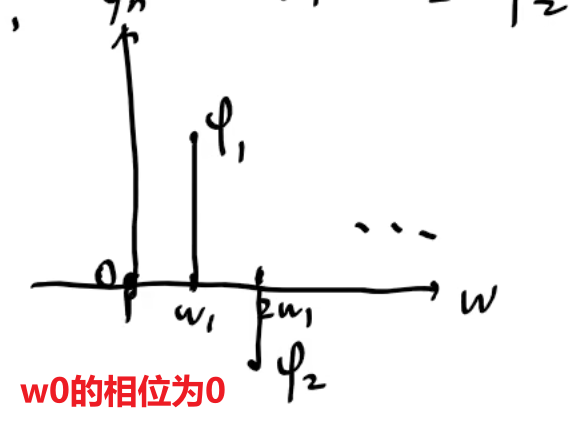 φ₂
φ₁
0
w₁
2w₁
w
φ₂
w0的相位为0